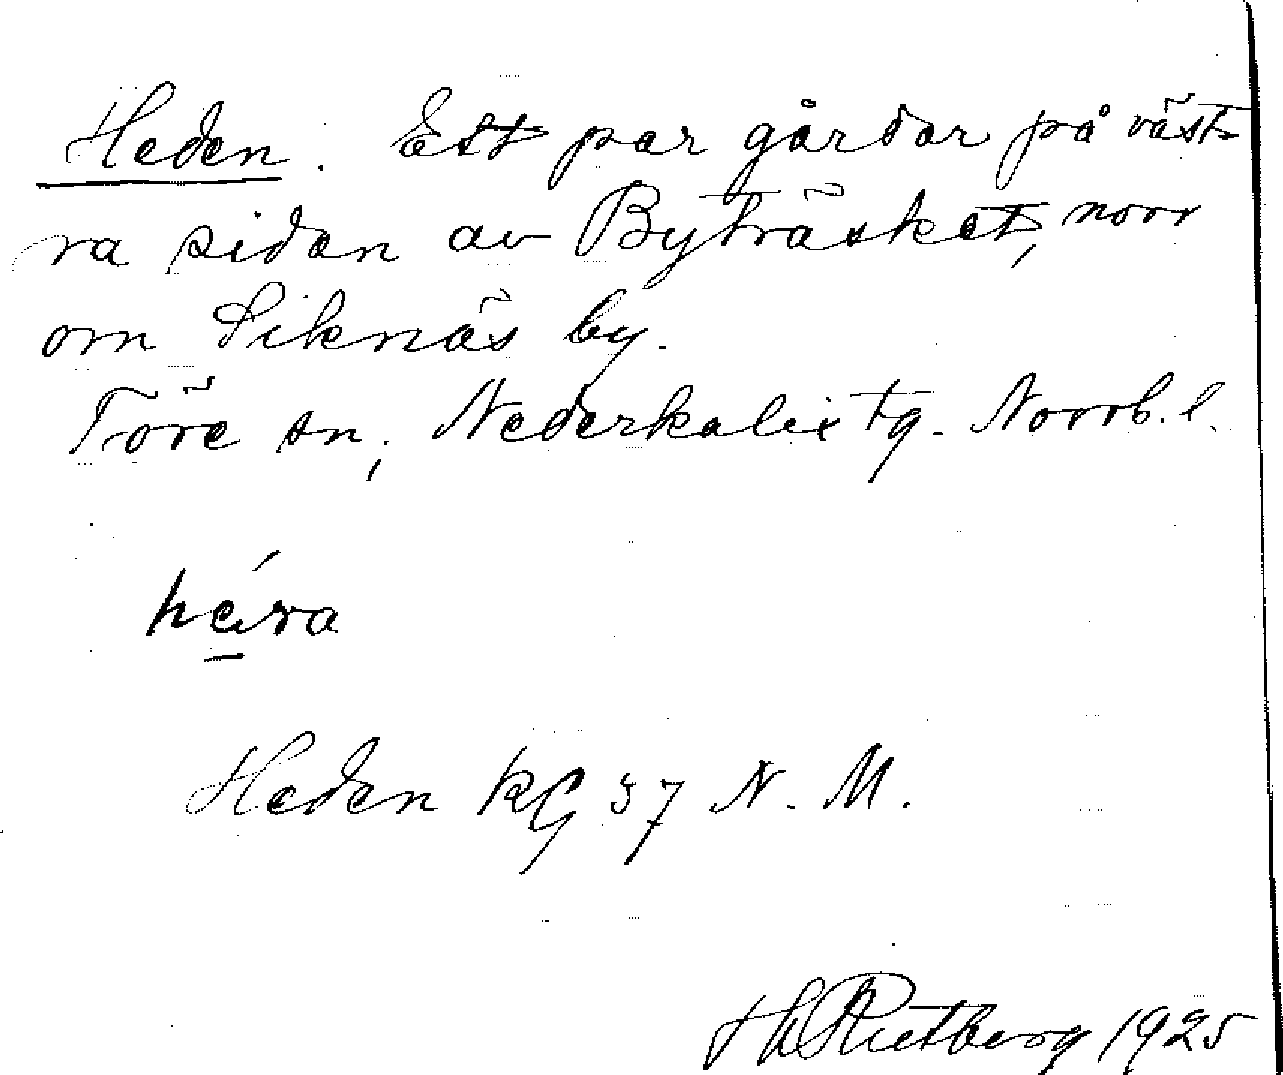 Heden. Ett par gårdar på väst-
ra sidan av Byträsket, norr
om Siknäs by.
Töre sn, Nederkalix tg. Norrb. l.
héra
Heden KG 37 N. M.
H Rutberg 1925